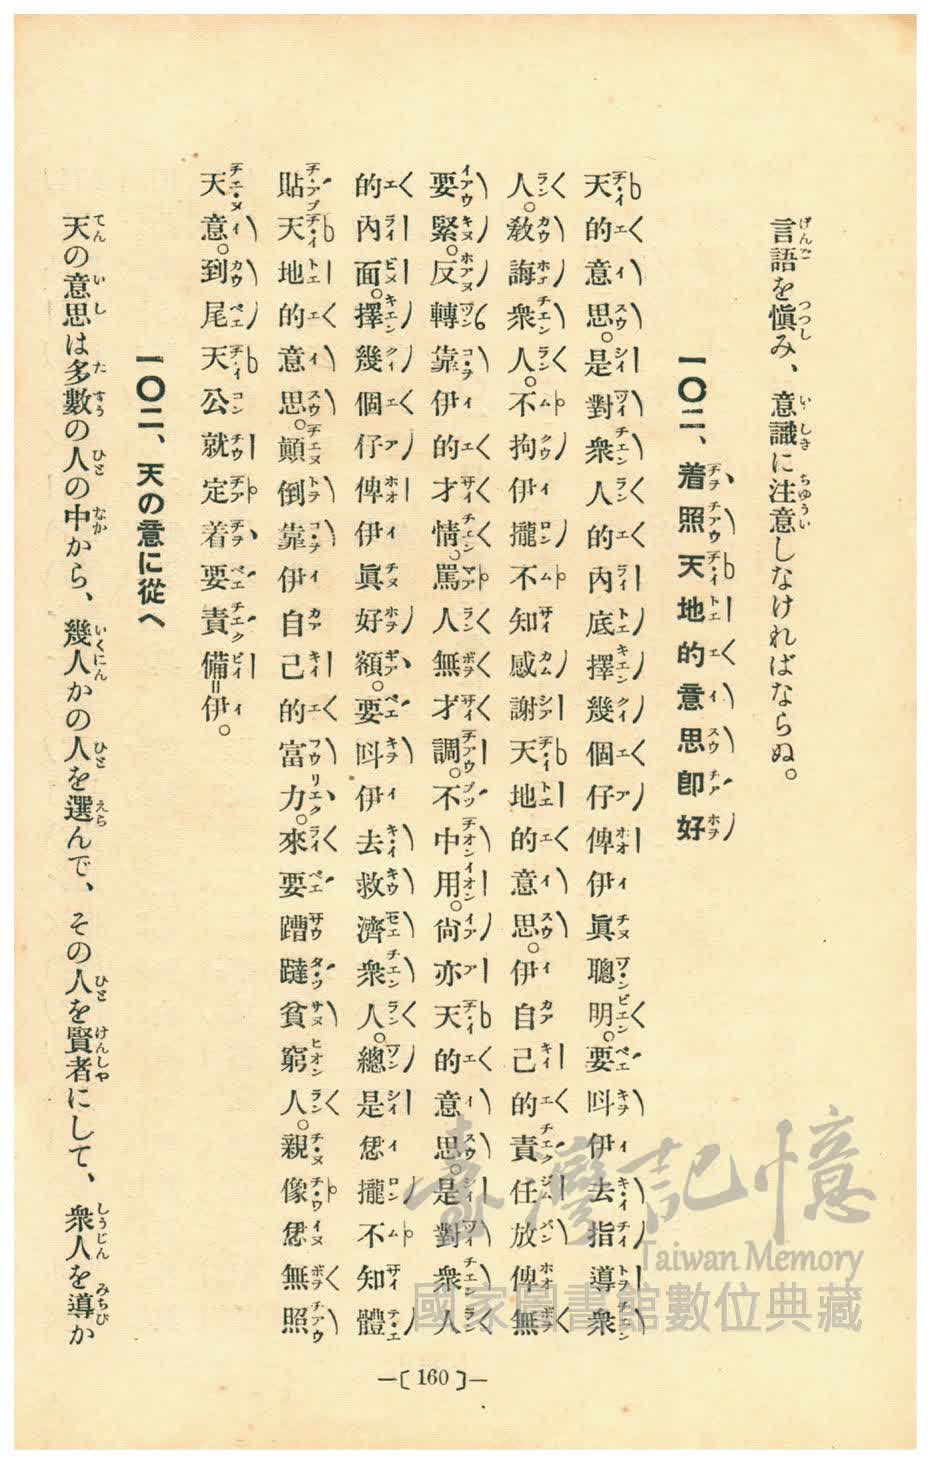 言語を愼み、意識に注意しなければならぬ。
一〇二、着照天地的意思卽好
天的意思。是對衆人的內底擇幾個仔俾伊眞聰明。要叫伊去指導衆
人。敎誨衆人。不拘伊攏不知感謝天地的意思。伊自己的責任放俾無
要緊。反轉靠伊的才情。罵人無才調。不中用。尙亦天的意思。是對衆人
的內面。擇幾個仔俾伊眞好額。要叫伊去救濟衆人。總是恁攏不知體
貼天地的意思。顛倒靠伊自己的富力。來要蹧躂貧窮人。親像恁無照
天意。到尾天公就定着要責備伊。
一〇二、天の意に從へ
天の意思は多數の人の中から、幾人かの人を選んで、その人を賢者にして、衆人を導か
—〔 160 〕—
臺灣記憶
Taiwan Memory
國家圖書館數位典藏